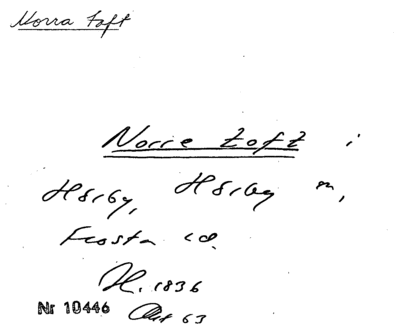 Norra toft
Norre toft i
Hörby, Hörby sn,
Frosta hd.
H. 1836
Nr 10446 Akt 63